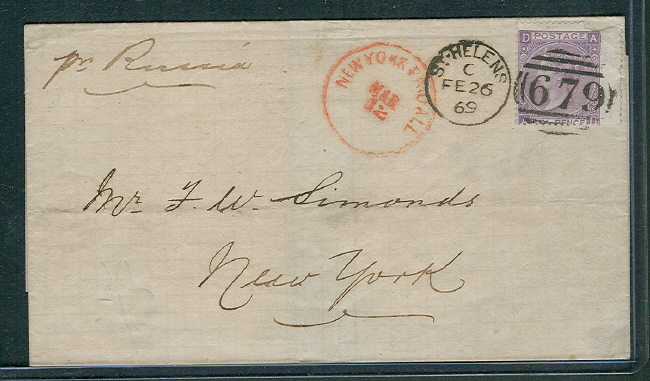 pr Russia
NEW YORK PAID ALL
MAR
ST. HELENS
C
FE 26
69
D POSTAGE A
679
PENCE
Mr. F. W. Simonds
New York